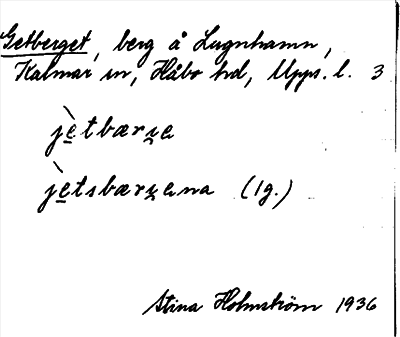 Getberget, berg å Lugnhamn,
Kalmar sn, Håbo hd, Upps. l. 3
jètbærze
jètsbærzena (lg.)
Stina Holmström 1936